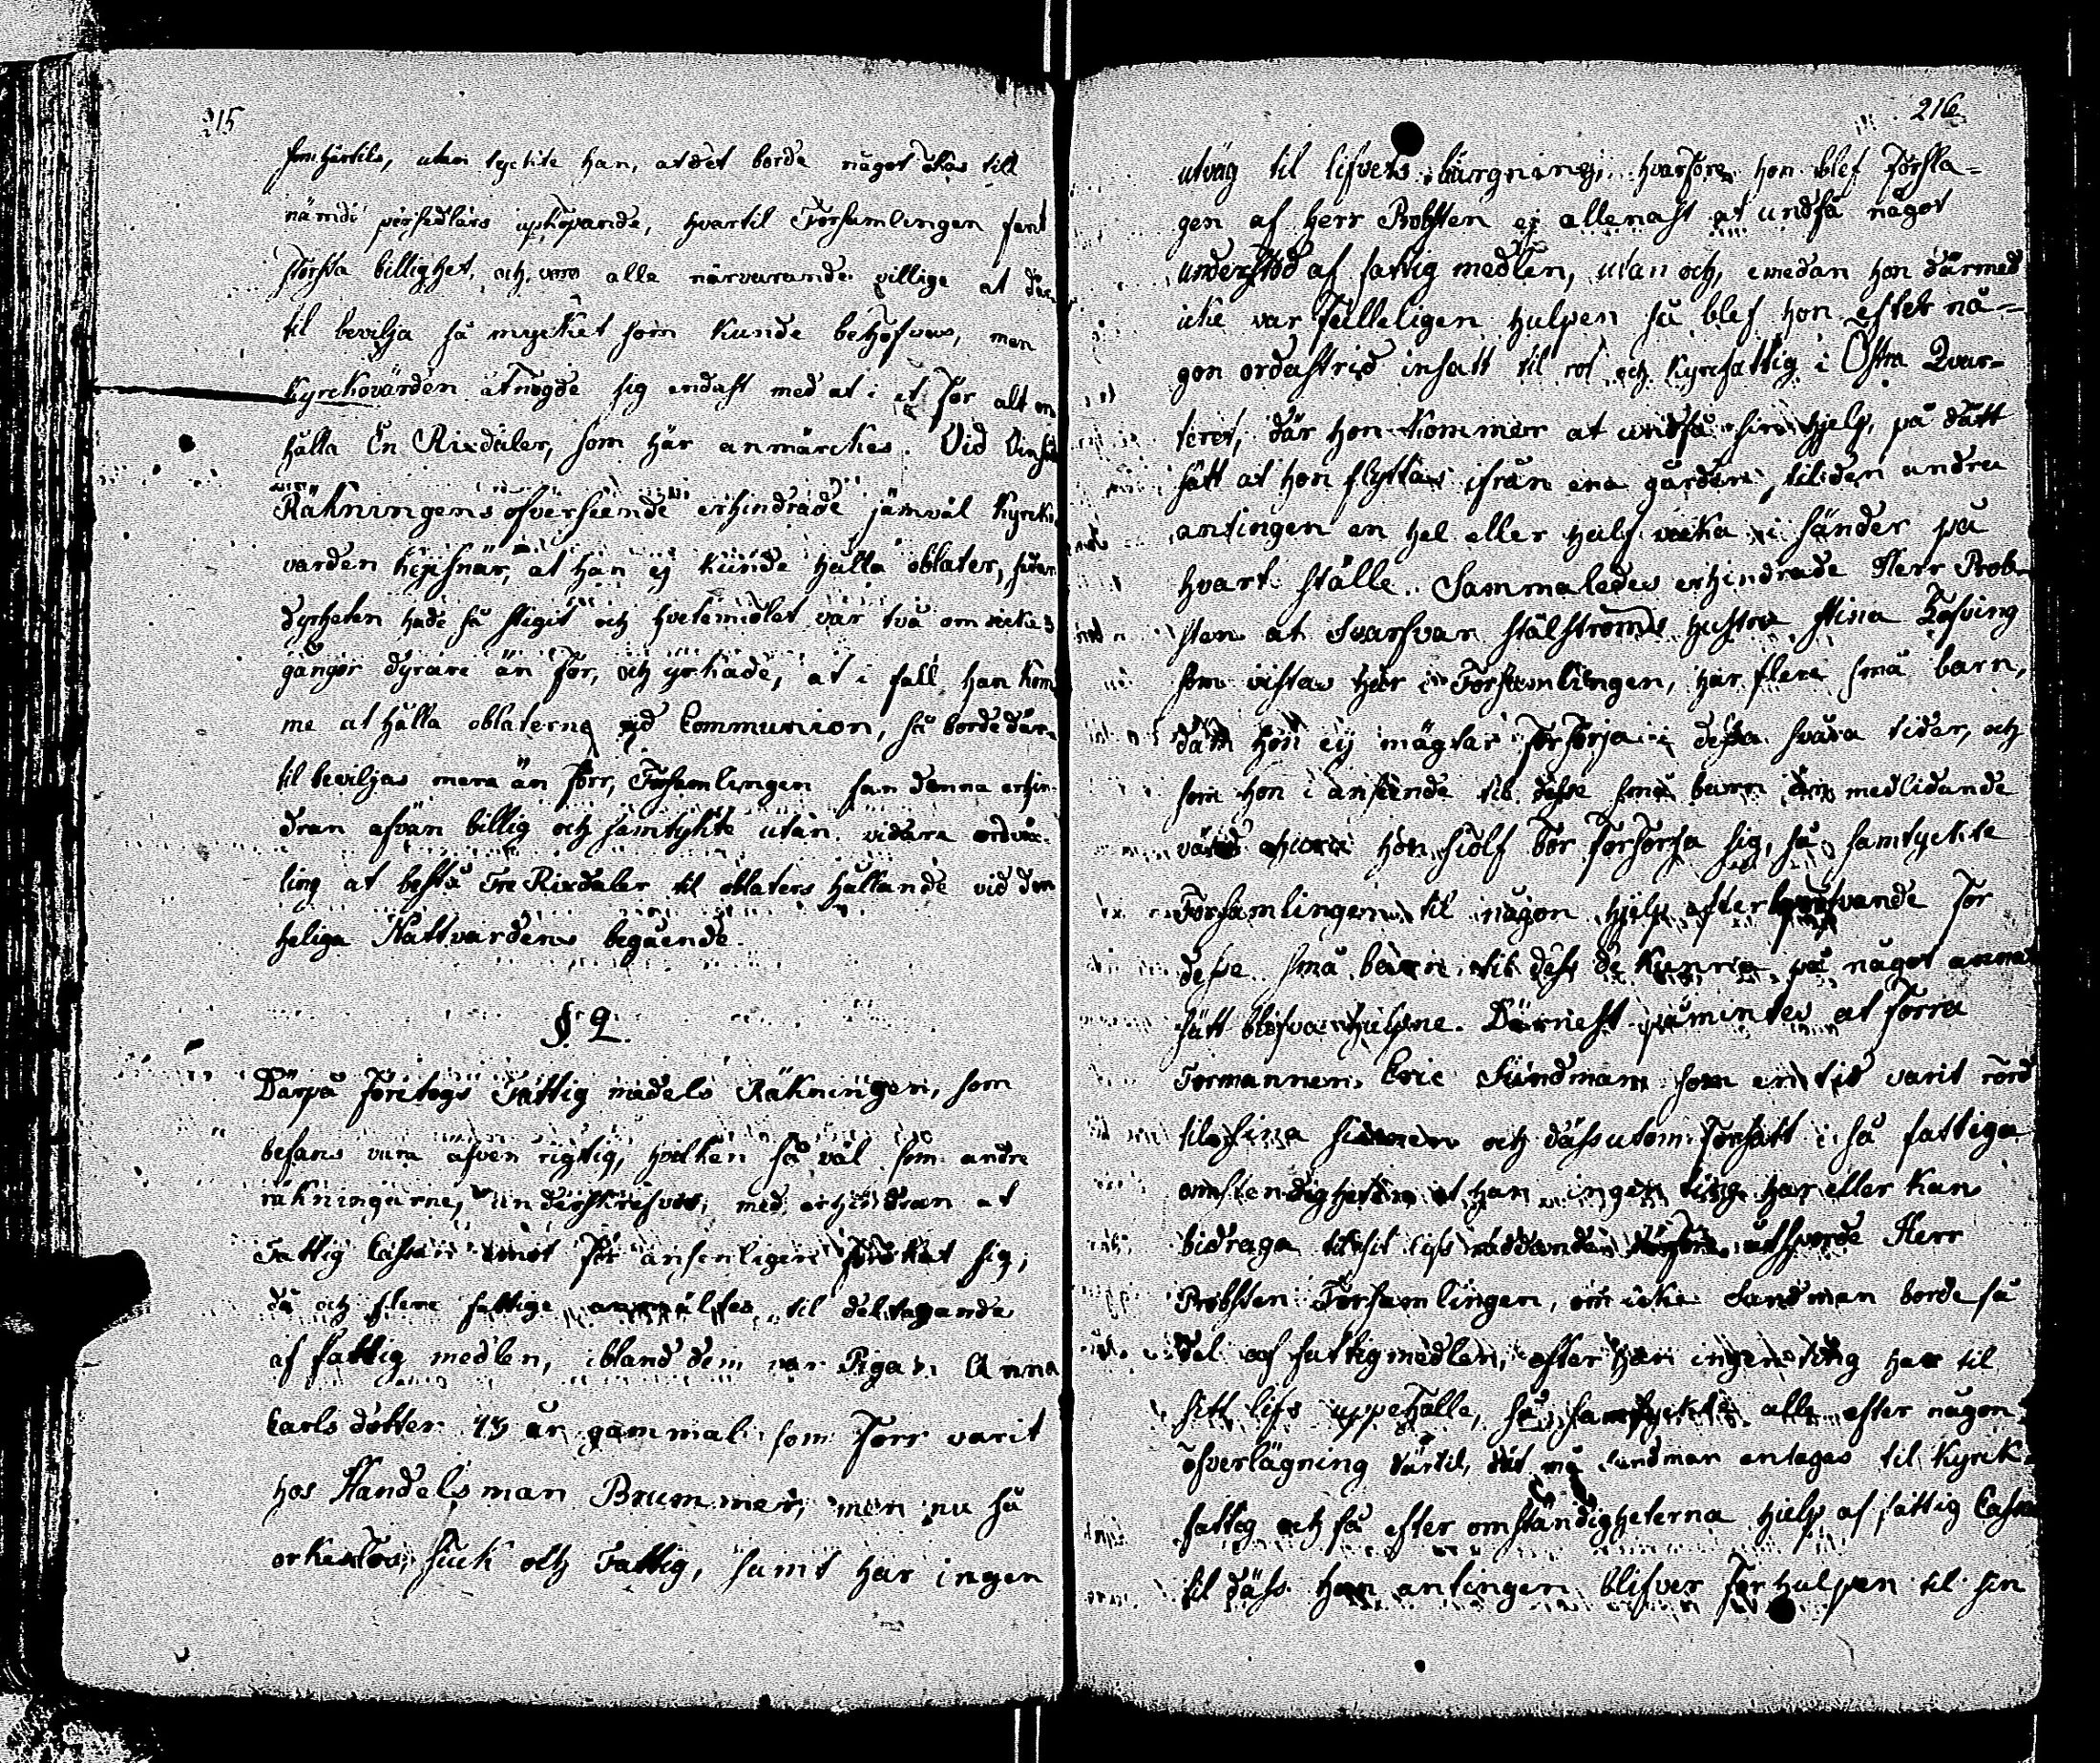 215
som härtils, utan tyckte han, at det borde något ökas till
nämde persedlars uphöpande, hvartil Församlingen fant
största billighet, och voro alla närvarande villige at där-
til bevilja så mycket som kunde behöfvas, men
Kyrckovärden åtnögde sig endast med at i et för alt er
hålla En Rixdaler, som här anmärckes. Vid
Räkningens öfverseende erhindrade jämväl Kyrcko
värden at han ej kunde hålla oblater, sedan
dyrheten hade så stigit och hvetemiölet var två om icke 3
gångor dyrare än för, och yrkade, at i fall han kom
me at hålla oblaterne vid Communion, så borde där-
til beviljas mera än förr, Församlingen fan denna erhin-
dran äfvan billig och samtykte utan vidare ordväx-
ling at bestå Tre Rixdaler til oblaters hållande vid den
heliga Nattvardens begående.
§ 2.
Därpå företogs Fattig medels Räkningen, som
befans vara äfven rigtig, hvilken så väl som andre
räkningarne, underskrefvos, med erhindran at
Fattig Cassan emot för ansenligen förökat sig,
då och flere fattige anmältes til deltagande
af fattig medlen, ibland dem var Pigan Anna
Carls dotter 43 år gammal som förr varit
hos Handelsman Brummer, men nu så
orkeslös, siuk och Fattig, samt har ingen
216
utväg til lifvets bärgning, hvarföre hon blef försla=
gen af Herr Probsten ej allenast at undfå något
understöd af fattig medlen, utan och, emedan hon därmed
icke var fulleligen hulpen så blef hon efter nå=
gon ordastrid insatt til rot och Kyrcfattig i Östra Qvar=
teret, där hon kommer at undfå sin hjelp, på sätt
sätt at hon flyttas ifrån ena gården til den andra
antingen en hel eller half vecka i sänder på
hvart ställe. Sammaledes erhindrade Herr Prob-
sten at Svarfvar Stålströms hustru Stina Löfving
som vistas här i Församlingen, har flera små barn,
dam hon ej mägtar försörja i dessa svåra tider, och
som hon i anseende til desse små barn är medlidande
värd ehuru hon siölf bör försörja sig, så samtyckte
Församlingen til någon hjelp efter för
desse små barn til dess de kunna på något annat
sätt blifva hulpne. Därnest påmintes at förra
Formannen Eric Sundman som en tid varit rörd
til sina sinnen och dässutom försatt i så fattiga
omstendigheter at han ingen ting har eller kan
bidraga til sit lifs räddande utsporde Herr
Probsten Församlingen, om icke Sundman borde få
del af fattigmedlen, efter han ingenting har til
sitt lifs uppehälle, så samtyckte alle efter någon
öfverlägning därtil, det må Sundman antagas til Kyrck-
fattig och få efter omständigheterna hjelp af fattig Cassan
til däss han antingen blifver förhulpen til sin